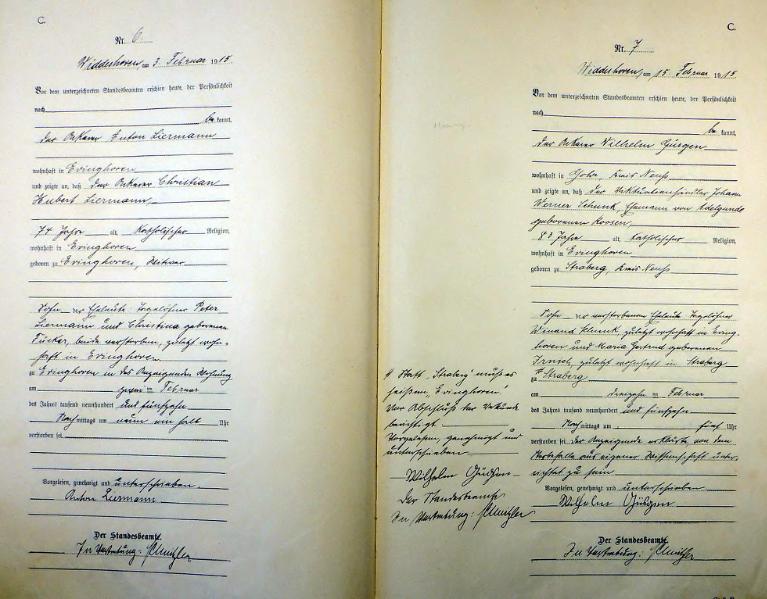 C.
Nr. 6
Widdeshoven, am 3. Februar 1915
Vor dem unterzeichneten Standesbeamten erschien heute, der Persönlichkeit
nach
be kannt,
der Ackerer Anton Liermann
wohnhaft in Evinghoven
und zeigte an, daß der Ackerer Christian
Hubert Liermann
74 Jahre alt, katholischer Religion,
wohnhaft in Evinghoven
geboren zu Evinghoven, Witwer
Sohn der Eheleute Tagelöhner Peter
Liermann und Christina geborenen
beide verstorben, zuletzt wohn-
haft in Evinghoven
zu Evinghoven in des Anzeigenden Wohnung
am zwei ten Februar
des Jahres tausend neunhundert und fünfzehn
Nachmittags um neun ein halb Uhr
verstorben sei.
Vorgelesen, genehmigt und unterschrieben
Anton Liermann
Der Standesbeamte.
In Vertretung:
C.
Nr. 7
Widdeshoven, am 15 Februar 1915
Vor dem unterzeichneten Standesbeamten erschien heute, der Persönlichkeit
nach
be kannt,
der Ackerer Wilhelm Güsgen
wohnhaft in Gohr, Kreis Neuß
und zeigte an, daß der Viktualienhändler Johann
Werner Schunk, Ehemann von Adelgunde
geborenen Roosen
83 Jahre alt, katholischer Religion,
wohnhaft in Evinghoven
geboren zu Straberg, Kreis Neuß
Sohn der verstorbenen Eheleute Tagelöhner
Winand Schunk, zuletzt wohnhaft in Eving-
hoven und Maria Gertrud geborenen
zuletzt wohnhaft in Straberg
zu # Straberg
am dreizehn ten Februar
des Jahres tausend neunhundert und fünfzehn
Nachmittags um fünf Uhr
verstorben sei. Der Anzeigende erklärte, von dem
Sterbefalle aus eigener Wissenschaft unter-
richtet zu sein
Vorgelesen, genehmigt und unterschrieben
Wilhelm Güsgen
Der Standesbeamte.
In Vertretung:
# Statt „Straberg" muß es
heißen „Evinghoven"
Vor Abschluß der Urkunde
berichtigt
Vorgelesen, genehmigt und
unterschrieben
Wilhelm Güsgen
Der Standesbeamte
In Vertretung: